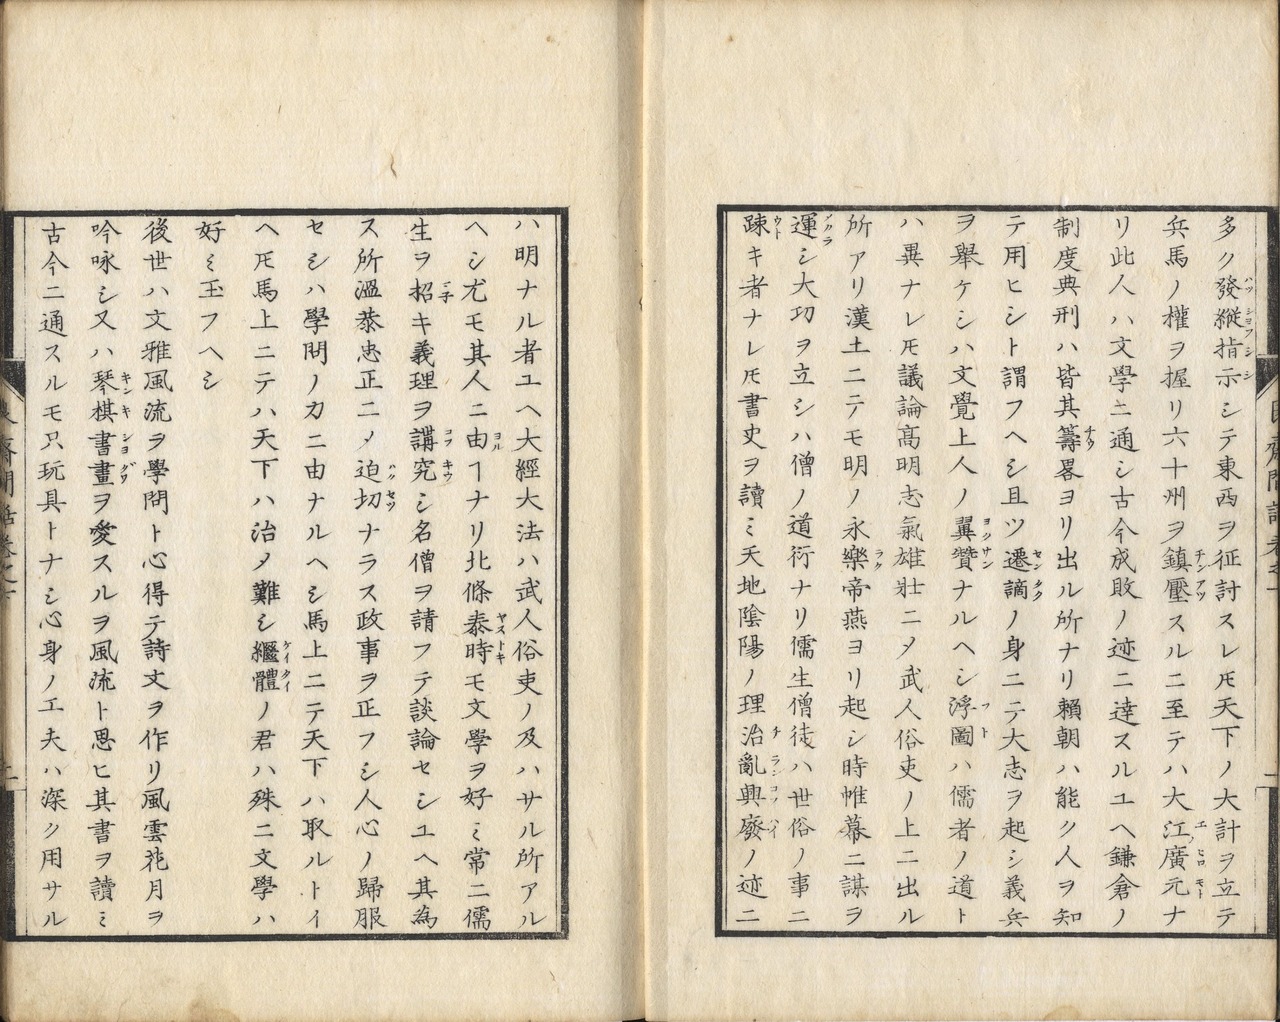 多ク發縱指示シテ東西ヲ征討スレ𪜈天下ノ大計ヲ立テ
兵馬ノ權ヲ握リ六十州ヲ鎮壓スルニ至テハ大江廣元ナ
リ此人ハ文學ニ通シ古今成敗ノ迹ニ達スルユヘ鎌倉ノ
制度典刑ハ皆其籌畧ヨリ出ル所ナリ賴朝ハ能ク人ヲ知
テ用ヒシト謂フヘシ且ツ遷謫ノ身ニテ大志ヲ起シ義兵
ヲ舉ケシハ文覺上人ノ翼贊ナルヘシ浮圖ハ儒者ノ道ト
ハ異ナレ𪜈議論髙明志氣雄壯ニメ武人俗吏ノ上ニ出ル
所アリ漢土ニテモ明ノ永樂帝燕ヨリ起シ時帷幕ニ謀ヲ
運シ大功ヲ立シハ僧ノ道衍ナリ儒生僧徒ハ世俗ノ事ニ
踈キ者ナレ𪜈書史ヲ讀ミ天地陰陽ノ理治亂興廢ノ迹ニ
ハ明ナル者ユヘ大經大法ハ武人俗吏ノ及ハサル所アル
ヘシ尤モ其人ニ由ヿナリ北條泰時モ文學ヲ好ミ常ニ儒
生ヲ招キ義理ヲ講究シ名僧ヲ請フテ談論セシユヘ其為
ス所溫恭忠正ニメ迫切ナラス政事ヲ正フシ人心ノ歸服
セシハ學問ノ力ニ由ナルヘシ馬上ニテ天下ハ取ルトイ
ヘ𪜈馬上ニテハ天下ハ治メ難シ繼體ノ君ハ殊ニ文學ハ
好ミ玉フヘシ
後世ハ文雅風流ヲ學問ト心得テ詩文ヲ作リ風雲花月ヲ
吟咏シ又ハ琴棋書畫ヲ愛スルヲ風流ト思ヒ其書ヲ讀ミ
古今ニ通スルモ只玩具トナシ心身ノ工夫ハ深ク用サル